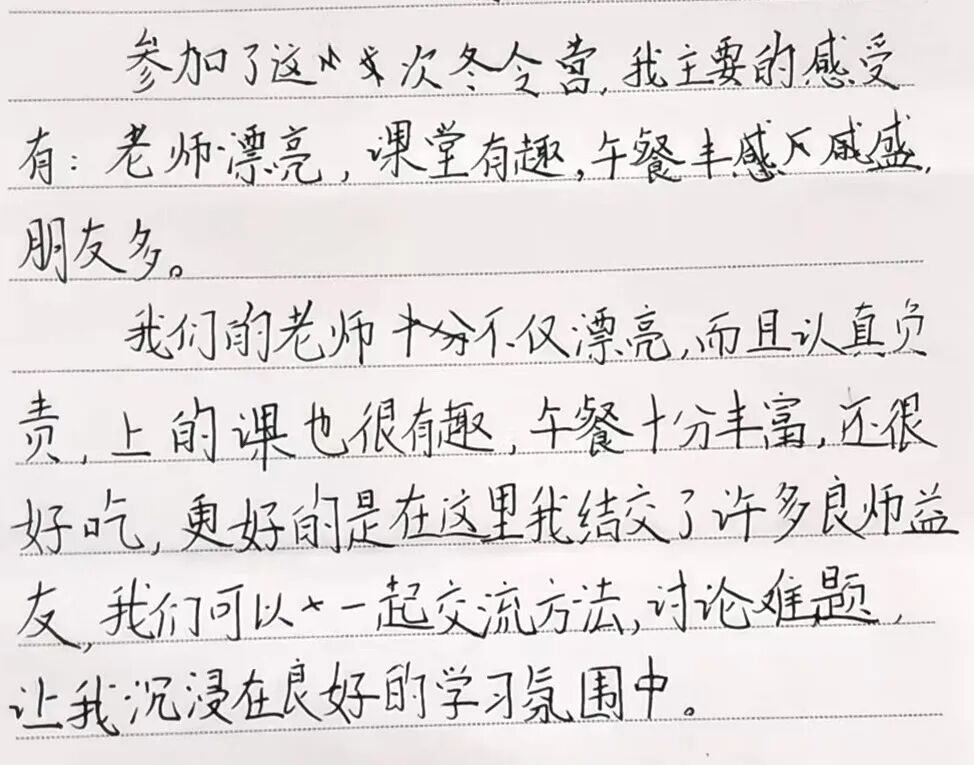 参加了这次冬令营,我主要的感受
有：老师漂亮，课堂有趣,午餐丰盛,
朋友多。
我们的老师不仅漂亮,而且认真负
责,上的课也很有趣,午餐十分丰富,还很
好吃,更好的是在这里我结交了许多良师益
友,我们可以一起交流方法,讨论难题,
让我沉浸在良好的学习氛围中。